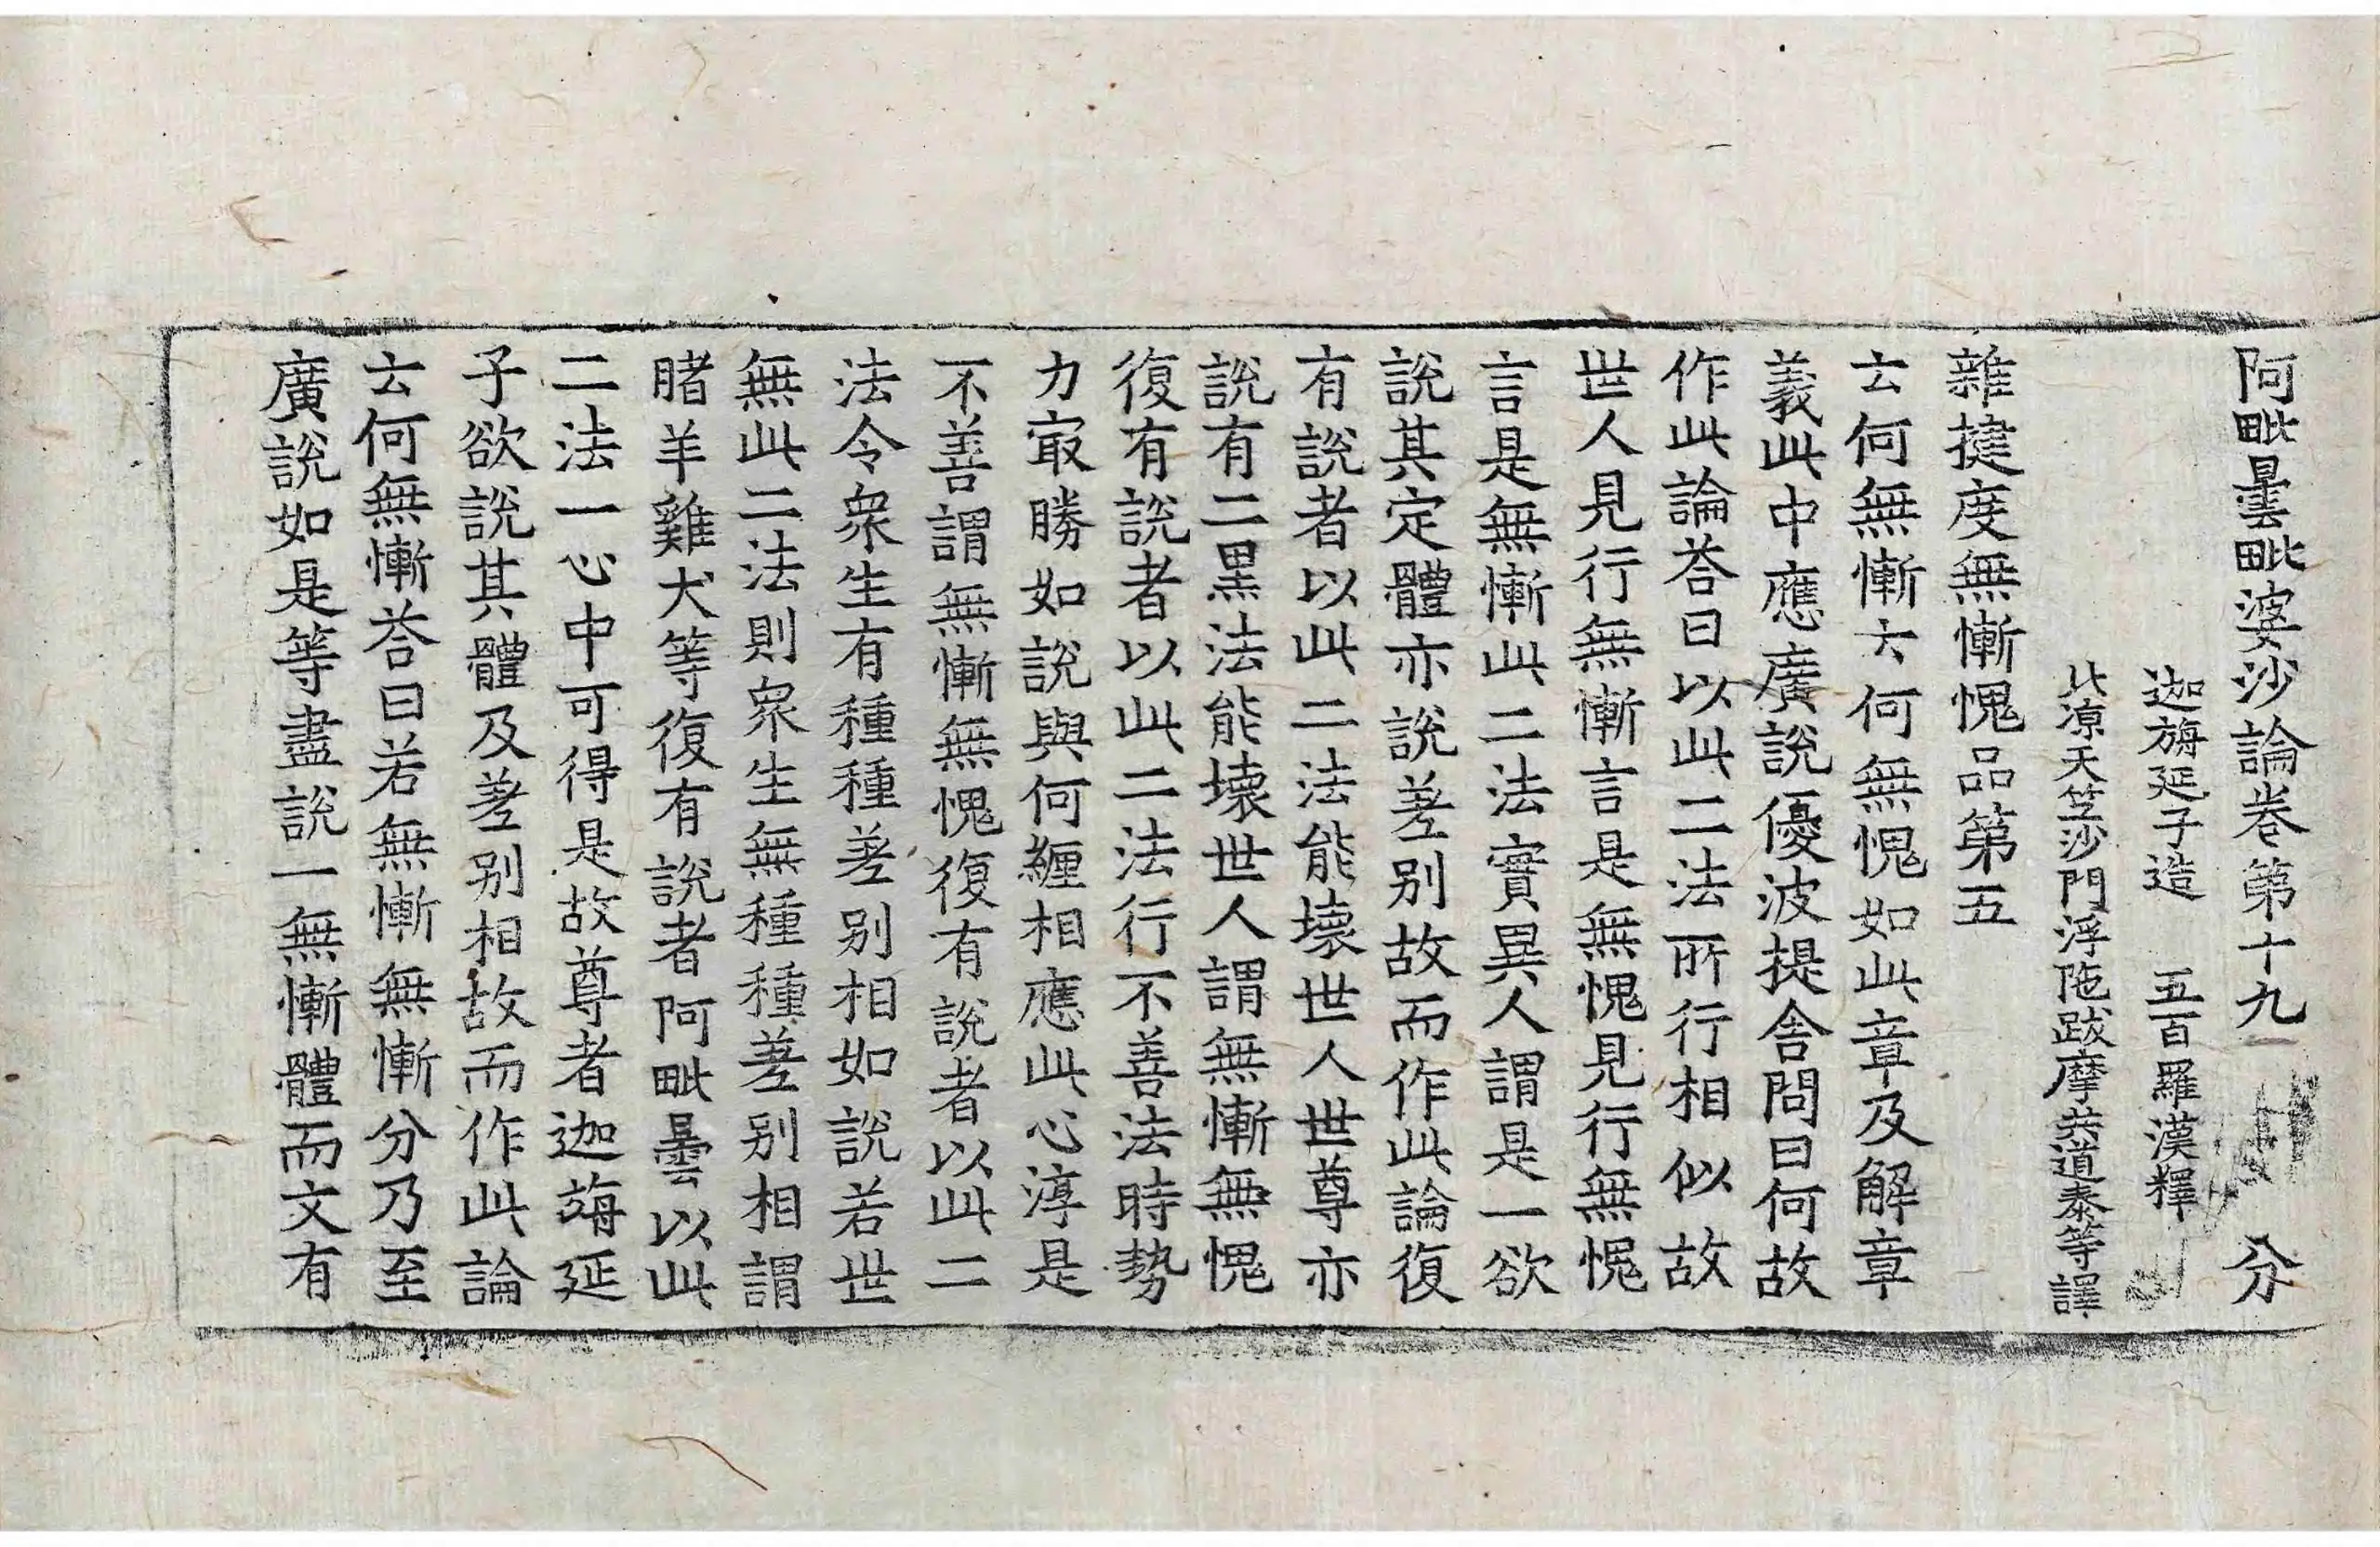 阿毗曇毗婆沙論卷第十九 分
迦旃延子造 五百羅漢釋
北涼天竺沙門浮陁跋摩共道泰等譯
雜揵度無慚愧品第五
云何無慚云何無愧如此章及解章
義此中應廣說優波提舍問曰何故
作此論荅曰以此二法所行相似故
世人見行無慚言是無愧見行無愧
言是無慚此二法實異人謂是一欲
說其定體亦說差別故而作此論復
有說者以此二法能壞世人世尊亦
說有二黑法能壞世人謂無慚無愧
復有說者以此二法行不善法時勢
力㝡勝如說與何纏相應此心淳是
不善謂無慚無愧復有說者以此二
法令衆生有種種差別相如說若世
無此二法則衆生無種種差別相謂
賭羊雞犬等復有說者阿毗曇以此
二法一心中可得是故尊者迦旃延
子欲說其體及差別相故而作此論
云何無慚荅曰若無慚無慚分乃至
廣說如是等盡說一無慚體而文有